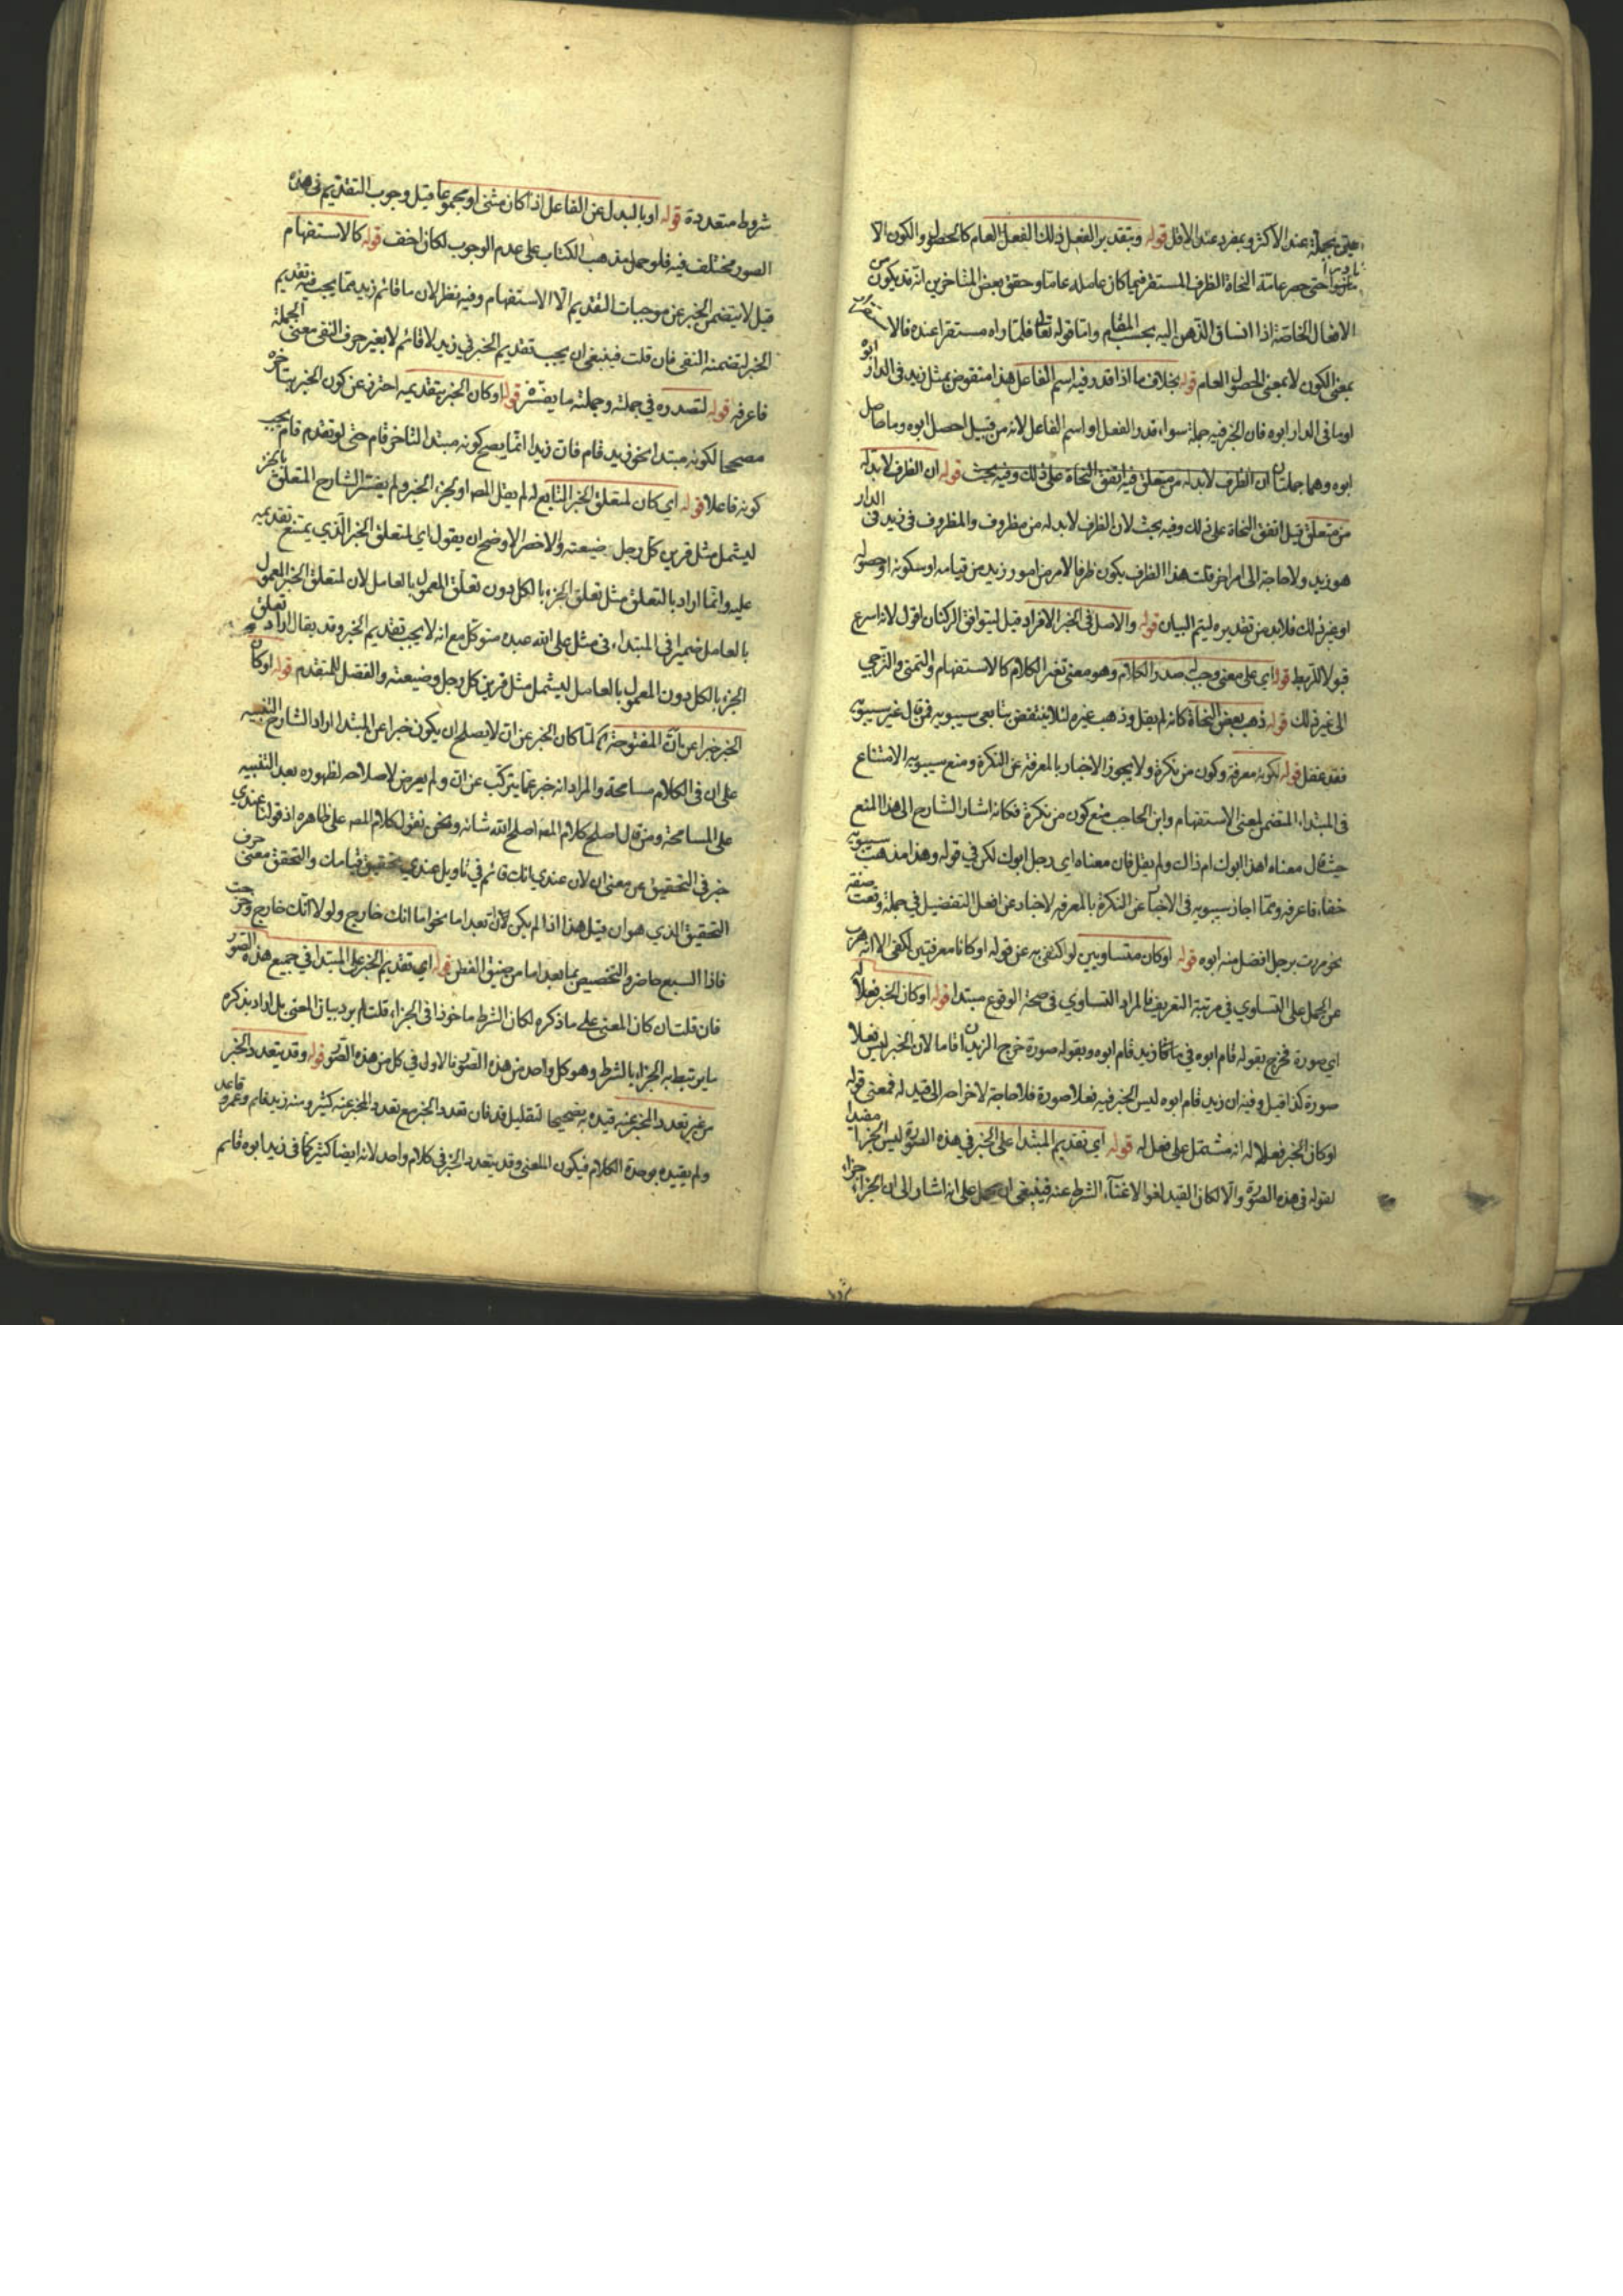 بجملة عند الاكثر وبمفرد عند الاقل قوله وبتقدير الفعل ذلك الفعل العام كالحصول والكون الا
حتى حصر عامة النحاة الظرف المستقر فيما كان عامله عاما وحقق بعض المتاخرين انه قد يكون من
الافعال الخاصة اذا انساق الذهن اليه بحسب المقام واما قوله تعالى فلما راه مستقرا عنده فالاستقرار
بمعنى الكون لا بمعنى الحصول العام قوله بخلاف ما اذا قدر فيه اسم الفاعل هذا منقوض بمثل زيد في الدار ابوه
او ما في الدار ابوه فان الخبر فيه جملة سواء قدر الفعل او اسم الفاعل لانه من قبيل احصل ابوه وما حاصل
ابوه وهما جملتان ان الظرف لا بد له من متعلق قيل اتفق النحاة على ذلك وفيه بحث قوله ان الظرف لا بد له
من متعلق قيل اتفق النحاة على ذلك وفيه بحث لان الظرف لا بد له من مظروف والمظروف في زيد في الدار
هو زيد ولا حاجة الى امر اخر قلت هذا الظرف يكون ظرفا لامر من امور زيد من قيامه او سكونه او حصوله
او غير ذلك فلا بد من تقديره ليتم البيان قوله والاصل في الخبر الافراد قيل ليتوافق الركنان اقول لانه اسرع
قبولا للربط قوله اي على معنى وجب له صدر الكلام وهو معنى تغير الكلام كالاستفهام والتمني والترجي
الى غير ذلك قوله ذهب بعض النحاة كانه لم يقل وذهب غيره لئلا ينتقض بتابعي سيبويه فمن قال غير سيبويه
فقد غفل قوله لكونه معرفة وكون من نكرة ولا يجوز الاخبار بالمعرفة عن النكرة ومنع سيبويه الامتناع
في المبتداء المتضمن لمعنى الاستفهام وابن الحاجب منع كون من نكرة فكانه اشار الشارح الى هذا المنع
حيث قال معناه اهذا ابوك ام ذاك ولم يقل فان معناه اي رجل ابوك لكن في قوله وهذا مذهب سيبويه
خفاء فاعرفه ومما اجاز سيبويه في الاخبار عن النكرة بالمعرفة لاخبار عن افعل التفضيل في جملة وقعت صفة
نحو مررت برجل افضل منه ابوه قوله او كان متساويين لو اكتفى به عن قوله او كانا معرفتين لكفى الا انه هرب
عن الحمل على التساوي في مرتبة التعريف فالمراد التساوي في صحة الوقوع مبتدا قوله او كان الخبر فعلا له
اي صورة فخرج بقوله قام ابوه في ما زيد قام ابوه وبقوله صورة خرج الزيدان قاما لان الخبر ليس فعلا
صورة كذا قيل وفيه ان زيد قام ابوه ليس الخبر فيه فعلا صورة فلا حاجة لاخراجه الى قيد له فمعنى قوله
او كان الخبر فعلا له انه مشتمل على فعل له قوله اي تقديم المبتدا على الخبر في هذه الصورة ليس الجزا مقيدا
لقوله في هذه الصورة والا لكان القيد لغوا لاغناء الشرط عنه فينبغي ان يحمل على انه اشار الى ان الجزاء جزاء
شروط متعددة قوله او بالبدل عن الفاعل اذا كان مثنى او مجموعا قيل وجوب التقديم في هذه
الصور مختلف فيه فلو حمل مذهب الكتاب على عدم الوجوب لكان اخف قوله كالاستفهام
قيل لا يتضمن الخبر عن موجبات التقديم الا الاستفهام وفيه نظر لان ما قائم زيد مما يجب فيه تقديم
الخبر لتضمنه النفي فان قلت فينبغي ان يجب تقديم الخبر في زيد لا قائم لا بغير حرف النفي معنى الجملة
فاعرفه قوله لتصدره في جملته وجملته ما يفسر قوله او كان الخبر بتقديمه احترز عن كون الخبر بتاخره
مصححا لكونه مبتدا نحو زيد قام فان زيدا انما يصح كونه مبتدا لتاخر قام حتى لو تقدم قام يجب
كونه فاعلا قوله اي كان لمتعلق الخبر التابع له لم يقل المص او لجزء الخبر ولم يفسر الشارح المتعلق بالجزء
ليشمل مثل قرين كل رجل ضيعته والاخصر الاوضح ان يقول اي لمتعلق الخبر الذي يمتنع تقديمه
عليه وانما اراد بالتعلق مثل تعلق الجزء بالكل دون تعلق المعمول بالعامل لان لمتعلق الخبر المعمول
بالعامل ضميرا في المبتداء في مثل على الله عبده متوكل مع انه لا يجب تقديم الخبر وقد يقال اراد تعلق
الجزء بالكل دون المعمول بالعامل ليشمل مثل قرين كل رجل وضيعته والفضل للمتقدم قوله او كان
الخبر خبرا عن ان المفتوحة لما كان الخبر عن ان لا يصلح ان يكون خبرا عن المبتدا اراد الشارح التنبيه
على ان في الكلام مسامحة والمراد انه خبر عما يتركب عن ان ولم يعرض لاصلاحه لظهوره بعد التنبيه
على المسامحة ومن قال اصلح كلام المص اصلح الله شانه ونحن نقول كلام المص على ظاهره اذ قولنا عندي
خبر في التحقيق عن معنى ان لان عندي انك قائم في تاويل عندي تحقيق قيامك والتحقق معنى حرف
التحقيق الذي هو ان قيل هذا اذا لم يكن ان بعد اما نحو اما انك خارج ولولا انك خارج
فاذا السبع حاضر والتخصيص بما بعد اما من ضيق الفطن قوله اي تقديم الخبر على المبتدا في جميع هذه الصور
فان قلت ان كان المعنى على ما ذكره لكان الشرط ماخوذا في الجزاء قلت لم يرد بيان المعنى بل اراد بذكره
ما يرتبط به الجزاء بالشرط وهو كل واحد من هذه الصور فالاولى في كل من هذه الصور قوله وقد يتعدد الخبر
من غير تعدد المخبر عنه قيده به تصحيحا لتقليل قد فان تعدد الخبر مع تعدد المخبر عنه كثير ومنه زيد قائم وعمرو قاعد
ولم يقيده بوحدة الكلام فيكون المعنى وقد يتعدد الخبر في كلام واحد لانه ايضا كثير كما في زيد ابوه قائم